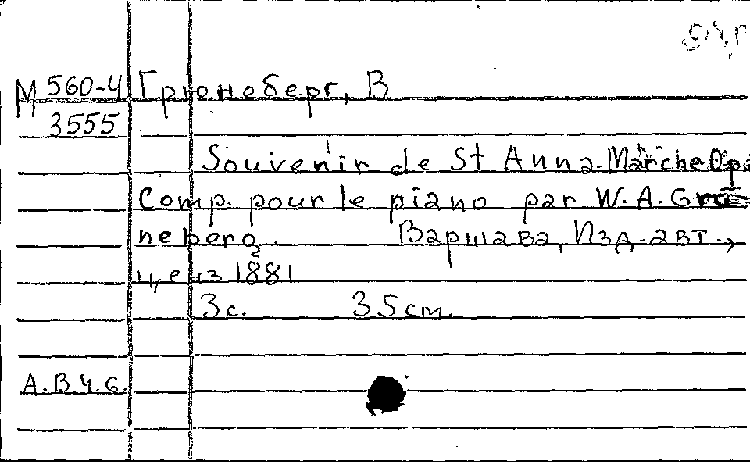 М 560-4 Грюнеберг, В
3555
Souvenir de St Anna. Marche Op
Comp. pour le piano par W. A. Grü
neberg. Варшава, Изд. авт.,
ценз 1881
3с. 35 см.
А.В.Ч.6.